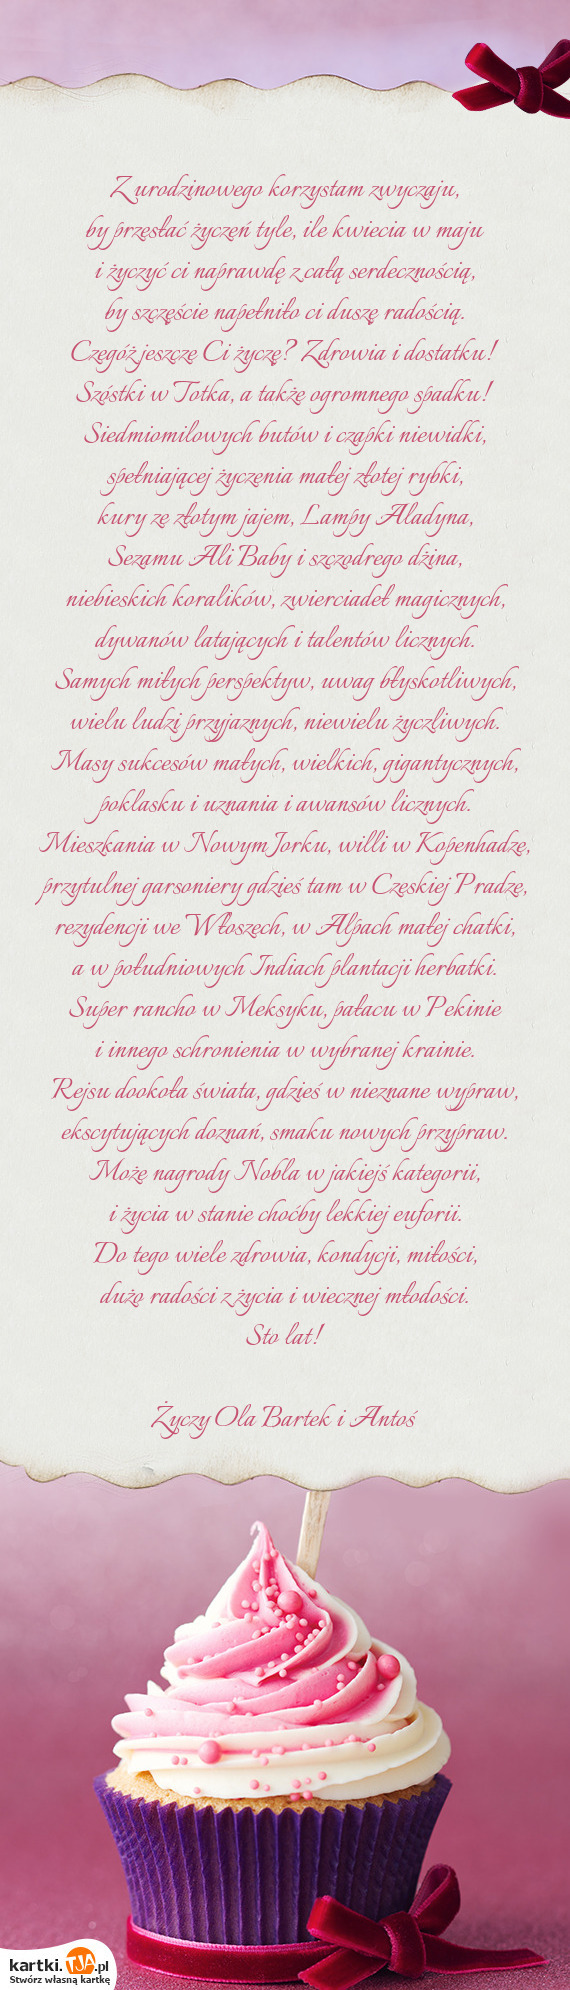 Z urodzinowego korzystam zwyczaju,
by przesłać życzeń tyle, ile kwiecia w maju
i życzyć ci naprawdę z całą serdecznością,
by szczęście napełniło ci duszę radością.
Czegóż jeszcze Ci życzę? Zdrowia i dostatku!
Szóstki w Totka, a także ogromnego spadku!
Siedmiomilowych butów i czapki niewidki,
spełniającej życzenia małej złotej rybki,
kury ze złotym jajem, Lampy Aladyna,
Sezamu Ali Baby i szczodrego dżina,
niebieskich koralików, zwierciadeł magicznych,
dywanów latających i talentów licznych.
Samych miłych perspektyw, uwag błyskotliwych,
wielu ludzi przyjaznych, niewielu życzliwych.
Masy sukcesów małych, wielkich, gigantycznych,
poklasku i uznania i awansów licznych.
Mieszkania w Nowym Jorku, willi w Kopenhadze,
przytulnej garsoniery gdzieś tam w Czeskiej Pradze,
rezydencji we Włoszech, w Alpach małej chatki,
a w południowych Indiach plantacji herbatki.
Super rancho w Meksyku, pałacu w Pekinie
i innego schronienia w wybranej krainie.
Rejsu dookoła świata, gdzieś w nieznane wypraw,
ekscytujących doznań, smaku nowych przypraw.
Może nagrody Nobla w jakiejś kategorii,
i życia w stanie choćby lekkiej euforii.
Do tego wiele zdrowia, kondycji, miłości,
dużo radości z życia i wiecznej młodości.
Sto lat!
Życzy Ola Bartek i Antoś
kartki.TJA.pl
Stwórz własną kartkę